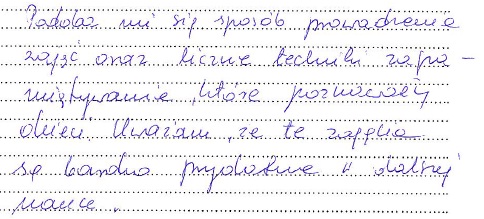 Podoba mi się sposób prowadzenia
zajęć oraz liczne techniki zapa-
miętywania, które poznawały
dzieci. Uważam, że te zajęcia
są bardzo przydatne w dalszej
nauce.